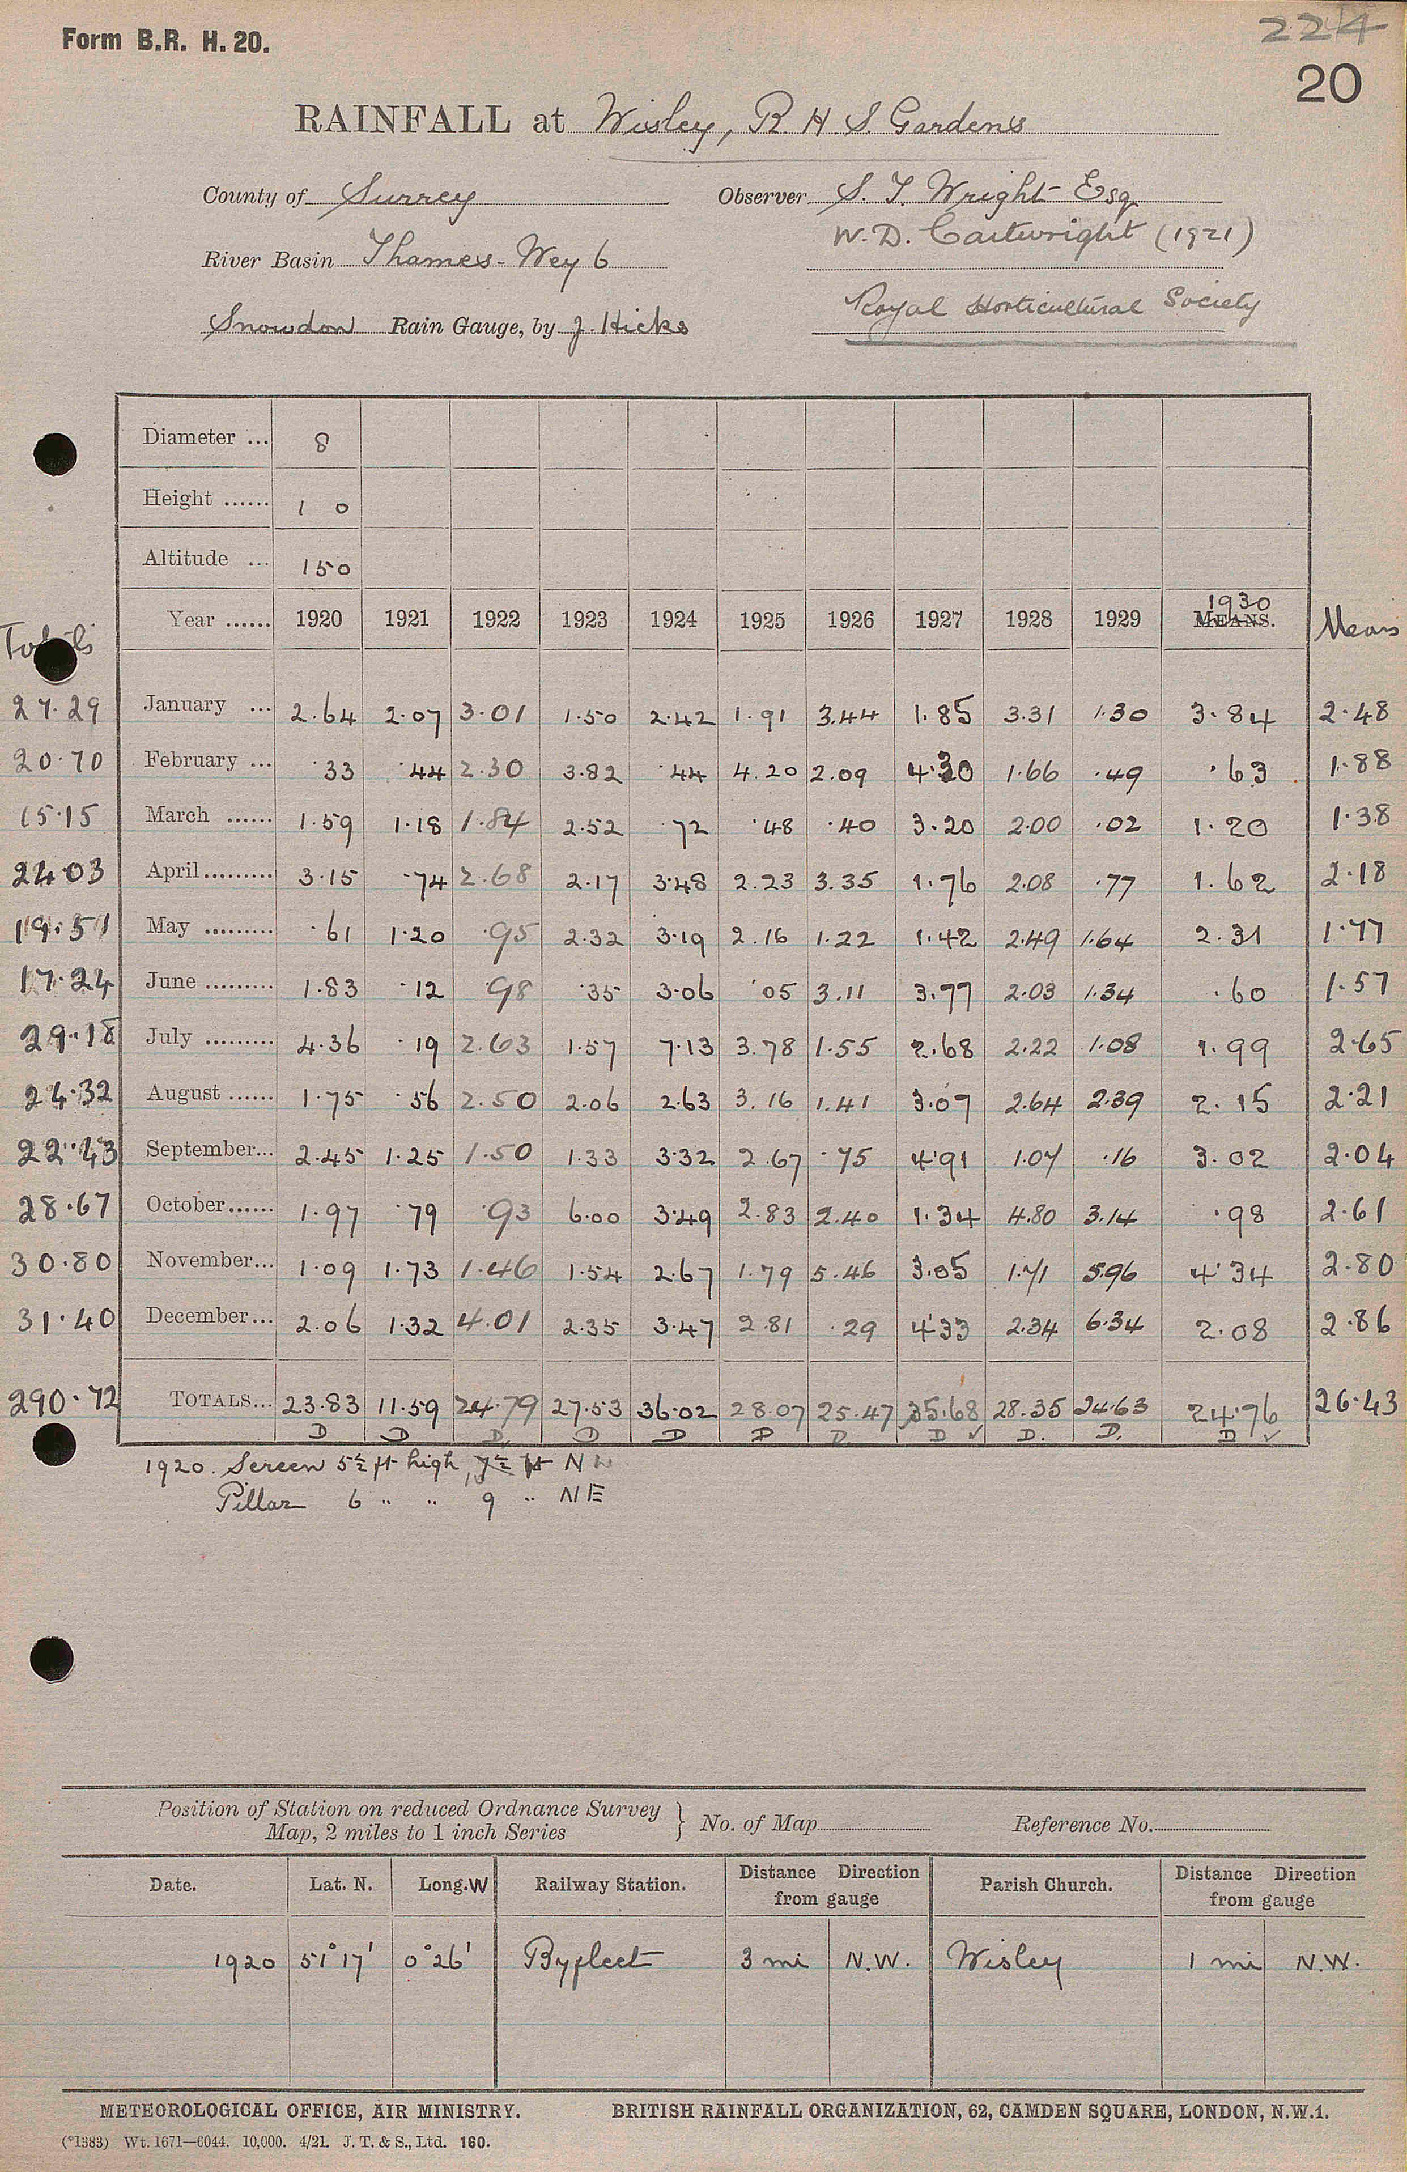 Form B.R. H. 20.
224
20
RAINFALL at Wisley, R. H. S. Gardens
County of Surrey Observer S. T. Wright Esq
W. D. Cartwright (1921)
River Basin Thames - Wey 6
Royal Horticultural Society
Snowdon Rain Gauge, by J. Hicks
Diameter ... 8
Height ...... 1 0
Altitude ... 150
Totals Year ...... 1920 1921 1922 1923 1924 1925 1926 1927 1928 1929 1930 MEANS. Means
27.29 January ... 2.64 2.07 3.01 1.50 2.42 1.91 3.44 1.85 3.31 1.30 3.84 2.48
20.70 February ... .33 .44 2.30 3.82 .44 4.20 2.09 4.30 1.66 .49 .63 1.88
15.15 March ...... 1.59 1.18 1.84 2.52 .72 .48 .40 3.20 2.00 .02 1.20 1.38
24.03 April ......... 3.15 .74 2.68 2.17 3.48 2.23 3.35 1.76 2.08 .77 1.62 2.18
19.51 May ......... .61 1.20 .95 2.32 3.19 2.16 1.22 1.42 2.49 1.64 2.31 1.77
17.24 June ......... 1.83 .12 .98 .35 3.06 .05 3.11 3.77 2.03 1.34 .60 1.57
29.18 July ......... 4.36 .19 2.63 1.57 7.13 3.78 1.55 2.68 2.22 1.08 1.99 2.65
24.32 August ...... 1.75 .56 2.50 2.06 2.63 3.16 1.41 3.07 2.64 2.39 2.15 2.21
22.43 September... 2.45 1.25 1.50 1.33 3.32 2.67 .75 4.91 1.07 .16 3.02 2.04
28.67 October...... 1.97 .79 .93 6.00 3.49 2.83 2.40 1.34 4.80 3.14 .98 2.61
30.80 November... 1.09 1.73 1.46 1.54 2.67 1.79 5.46 3.05 1.71 5.96 4.34 2.80
31.40 December... 2.06 1.32 4.01 2.35 3.47 2.81 .29 4.33 2.34 6.34 2.08 2.86
290.72 TOTALS... 23.83 11.59 24.79 27.53 36.02 28.07 25.47 35.68 28.35 24.63 24.76 26.43
D D D D D D D D ✓ D. D. D ✓
1920. Screen 5½ ft high, 7½ ft N
Pillar 6 " " 9 " NE
Position of Station on reduced Ordnance Survey
Map, 2 miles to 1 inch Series } No. of Map Reference No.
Date. Lat. N. Long. W Railway Station. Distance Direction from gauge Parish Church. Distance Direction from gauge
1920 51°17' 0°26' Byfleet 3 mi N.W. Wisley 1 mi N.W.
METEOROLOGICAL OFFICE, AIR MINISTRY. BRITISH RAINFALL ORGANIZATION, 62, CAMDEN SQUARE, LONDON, N.W.1.
(*1383) Wt. 1671—6044. 10,000. 4/21. J. T. & S., Ltd. 160.